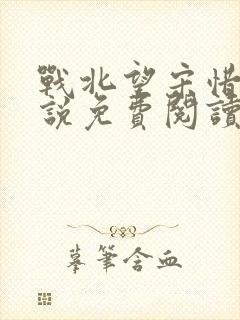 戰北望宋惜
說免費閱讀
摹筆含血